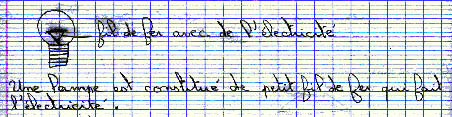 fil de fer avec de l'électricité
Une lampe est constitué de petit fil de fer qui fait
l'électricité.